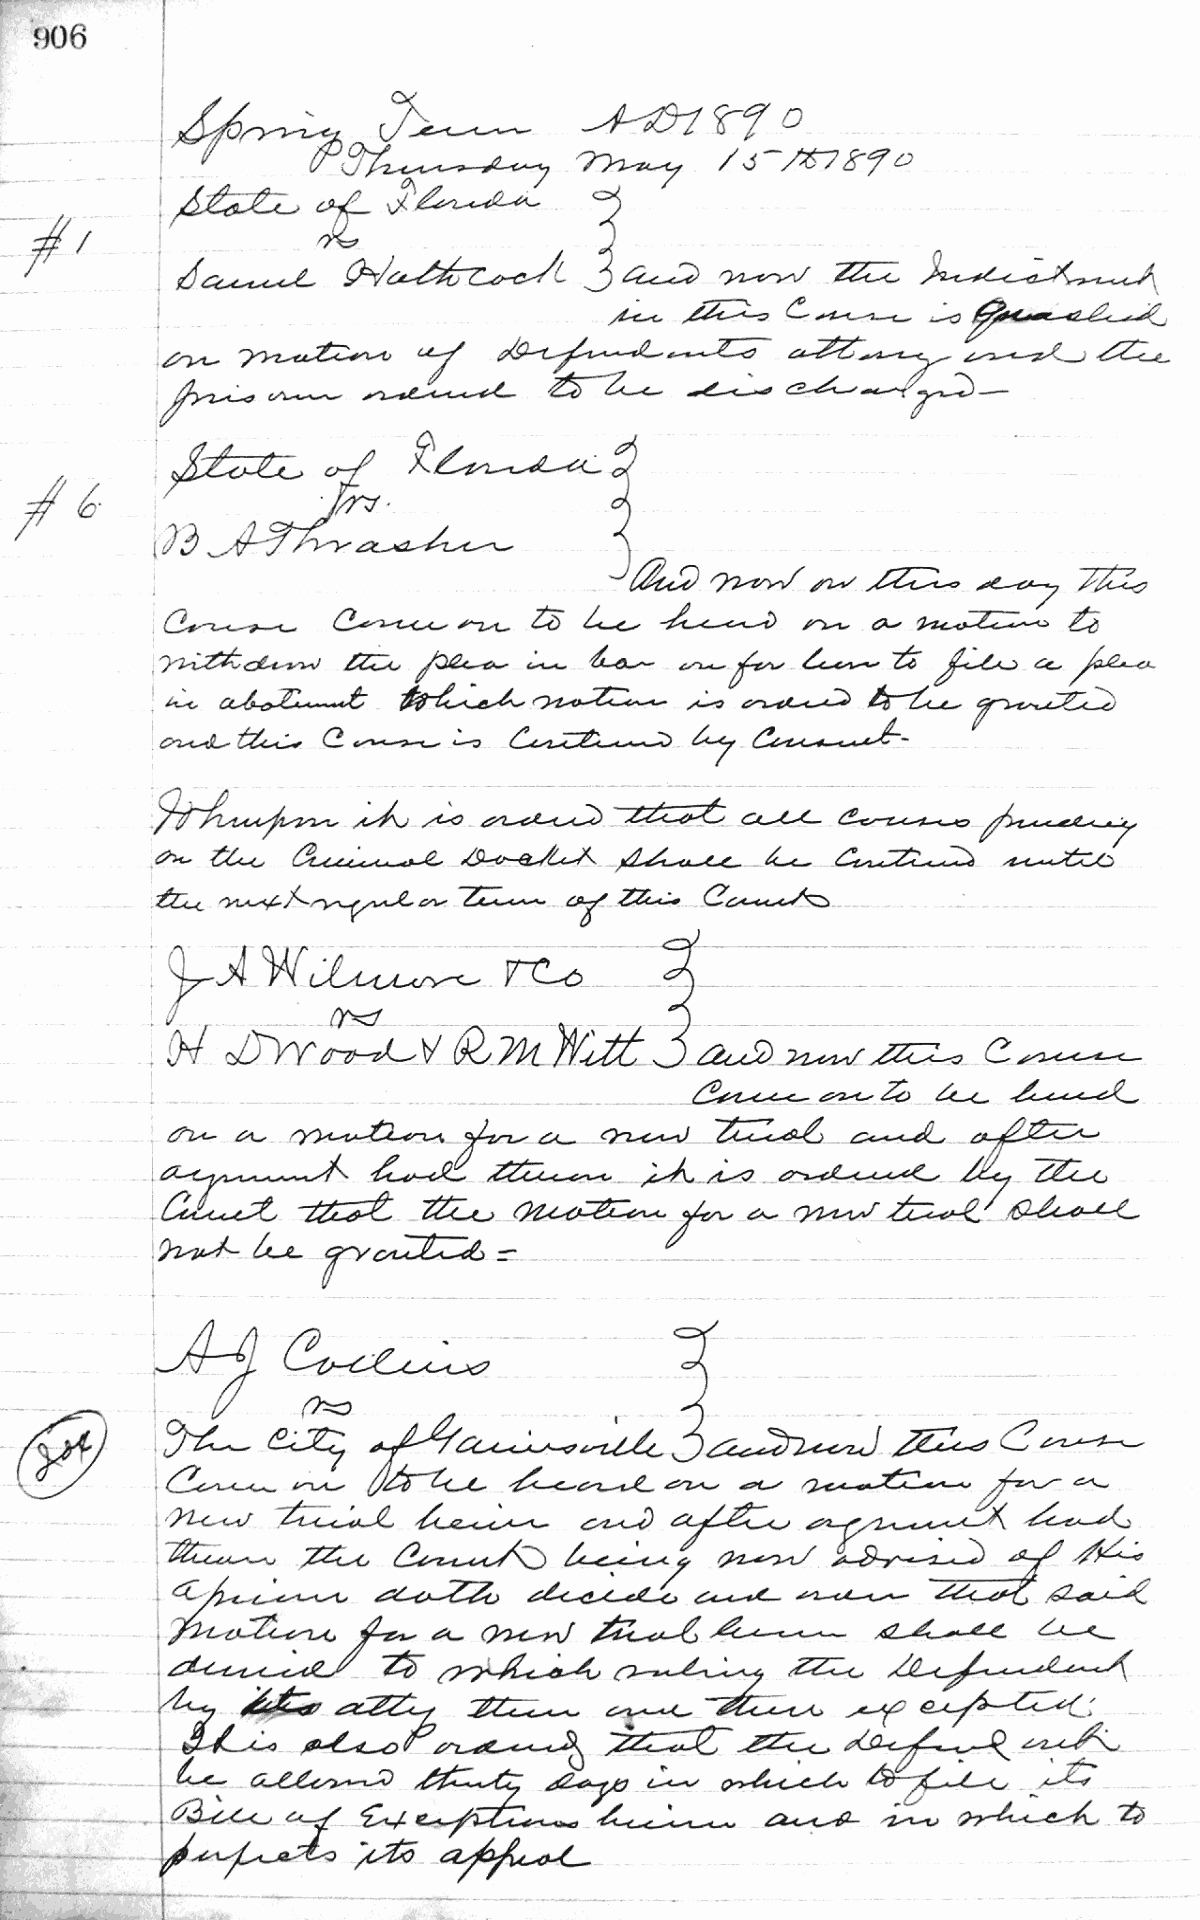 906
Spring Term AD 1890
Thursday May 15th 1890
State of Florida
#1
vs
Samuel Hathcock } and now the Indictment
in this Cause is Quashed
on motion of Defendants attorney and the
prisoner ordered to be discharged—
State of Florida
#6
vs.
B A Thrasher
And now on this day this
Cause Come on to be heard on a motion to
withdraw the plea in bar on for him to file a plea
in abatement which motion is ordered to be granted
and this Cause is Continued by Consent.
Whereupon it is ordered that all causes pending
on the Criminal Docket shall be Continued until
the next regular term of this Court
J A Wilmore & Co
vs
H D Wood & R M Witt } and now this Cause
Come on to be heard
on a motion for a new trial and after
argument had thereon it is ordered by the
Court that the motion for a new trial shall
not be granted =
A J Collins
vs
The City of Gainesville } and now this Cause
Come on to be heard on a motion for a
new trial herein and after argument had
thereon the Court being now advised of His
opinion doth decide and order that said
motion for a new trial herein shall be
denied to which ruling the Defendant
by its atty then and there excepted.
It is also ordered that the Defendant
be allowed thirty days in which to file its
Bill of Exceptions herein and in which to
perfects its appeal